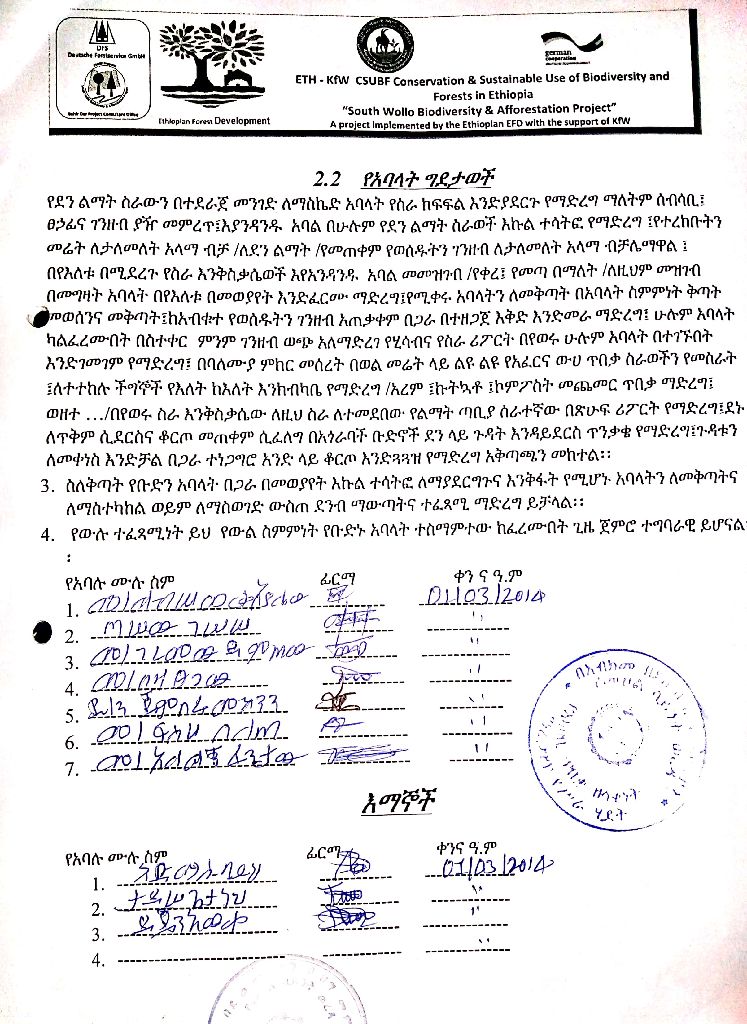 DFS
Deutsche Forstservice GmbH
Ethiopian Forest Development
german
cooperation
ETH - KfW CSUBF Conservation & Sustainable Use of Biodiversity and
Forests in Ethiopia
“South Wollo Biodiversity & Afforestation Project”
A project implemented by the Ethiopian EFD with the support of KfW
2.2 የአባላት ግዴታወች
የደን ልማት ስራውን በተደራጀ መንገድ ለማስኬድ አባላት የስራ ክፍፍል እንድያደርጉ የማድረግ ማለትም ሰብሳቢ፤
ፀኃፊና ገንዘብ ያዥ መምረጥ፤እያንዳንዱ አባል በሁሉም የደን ልማት ስራወች እኩል ተሳትፎ የማድረግ ፤የተረከቡትን
መሬት ለታለመለት አላማ ብቻ /ለደን ልማት /የመጠቀም የወሰዱትን ገንዘብ ለታለመለት አላማ ብቻሌማዋል ፤
በየእለቱ በሚደረጉ የስራ እንቅስቃሴወች እየአንዳንዱ አባል መመዝገብ /የቀረ፤ የመጣ በማለት /ለዚህም መዝገብ
በመግዛት አባላት በየእለቱ በመወያየት እንድፈርሙ ማድረግ፤የሚቀሩ አባላትን ለመቅጣት በአባላት ስምምነት ቅጣት
መወሰንና መቅጣት፤ከአብቁተ የወሰዱትን ገንዘብ አጠቃቀም በጋራ በተዘጋጀ እቅድ እንድመራ ማድረግ፤ ሁሉም አባላት
ካልፈረሙበት በስተቀር ምንም ገንዘብ ወጭ አለማድረግ የሂሳብና የስራ ሪፖርት በየወሩ ሁሉም አባላት በተገኙበት
እንድገመገም የማድረግ፤ በባለሙያ ምክር መሰረት በወል መሬት ላይ ልዩ ልዩ የአፈርና ውሀ ጥበቃ ስራወችን የመስራት
፤ለተተከሉ ችግኞች የእለት ከእለት እንክብካቤ የማድረግ /አረም ፤ኩትኳቶ ፤ኮምፖስት መጨመር ጥበቃ ማድረግ፤
ወዘተ …/በየወሩ ስራ እንቅስቃሴው ለዚህ ስራ ለተመደበው የልማት ጣቢያ ሰራተኛው በጽሁፍ ሪፖርት የማድረግ፤ደኑ
ለጥቅም ሲደርስና ቆርጦ መጠቀም ሲፈለግ በአጎራባች ቡድኖች ደን ላይ ጉዳት እንዳይደርስ ጥንቃቄ የማድረግ፤ጉዳቱን
ለመቀነስ እንድቻል በጋራ ተነጋግሮ አንድ ላይ ቆርጦ እንድጓጓዝ የማድረግ አቅጣጫን መከተል፡፡
3. ስለቅጣት የቡድን አባላት በጋራ በመወያየት እኩል ተሳትፎ ለማያደርግጉና እንቅፋት የሚሆኑ አባላትን ለመቅጣትና
ለማስተካከል ወይም ለማስወገድ ውስጠ ደንብ ማውጣትና ተፈጻሚ ማድረግ ይቻላል፡፡
4. የውሉ ተፈጻሚነት ይህ የውል ስምምነት የቡድኑ አባላት ተስማምተው ከፈረሙበት ጊዜ ጀምሮ ተግባራዊ ይሆናል፡
፡
የአባሉ ሙሉ ስም ፊርማ ቀን ና ዓ.ም
1. 01/03/2014
2. ''
3. ''
4. ''
5. ''
6. ''
7. ''
እማኞች
የአባሉ ሙሉ ስም ፊርማ ቀንና ዓ.ም
1. 01/03/2014
2. ''
3. ''
4. ''